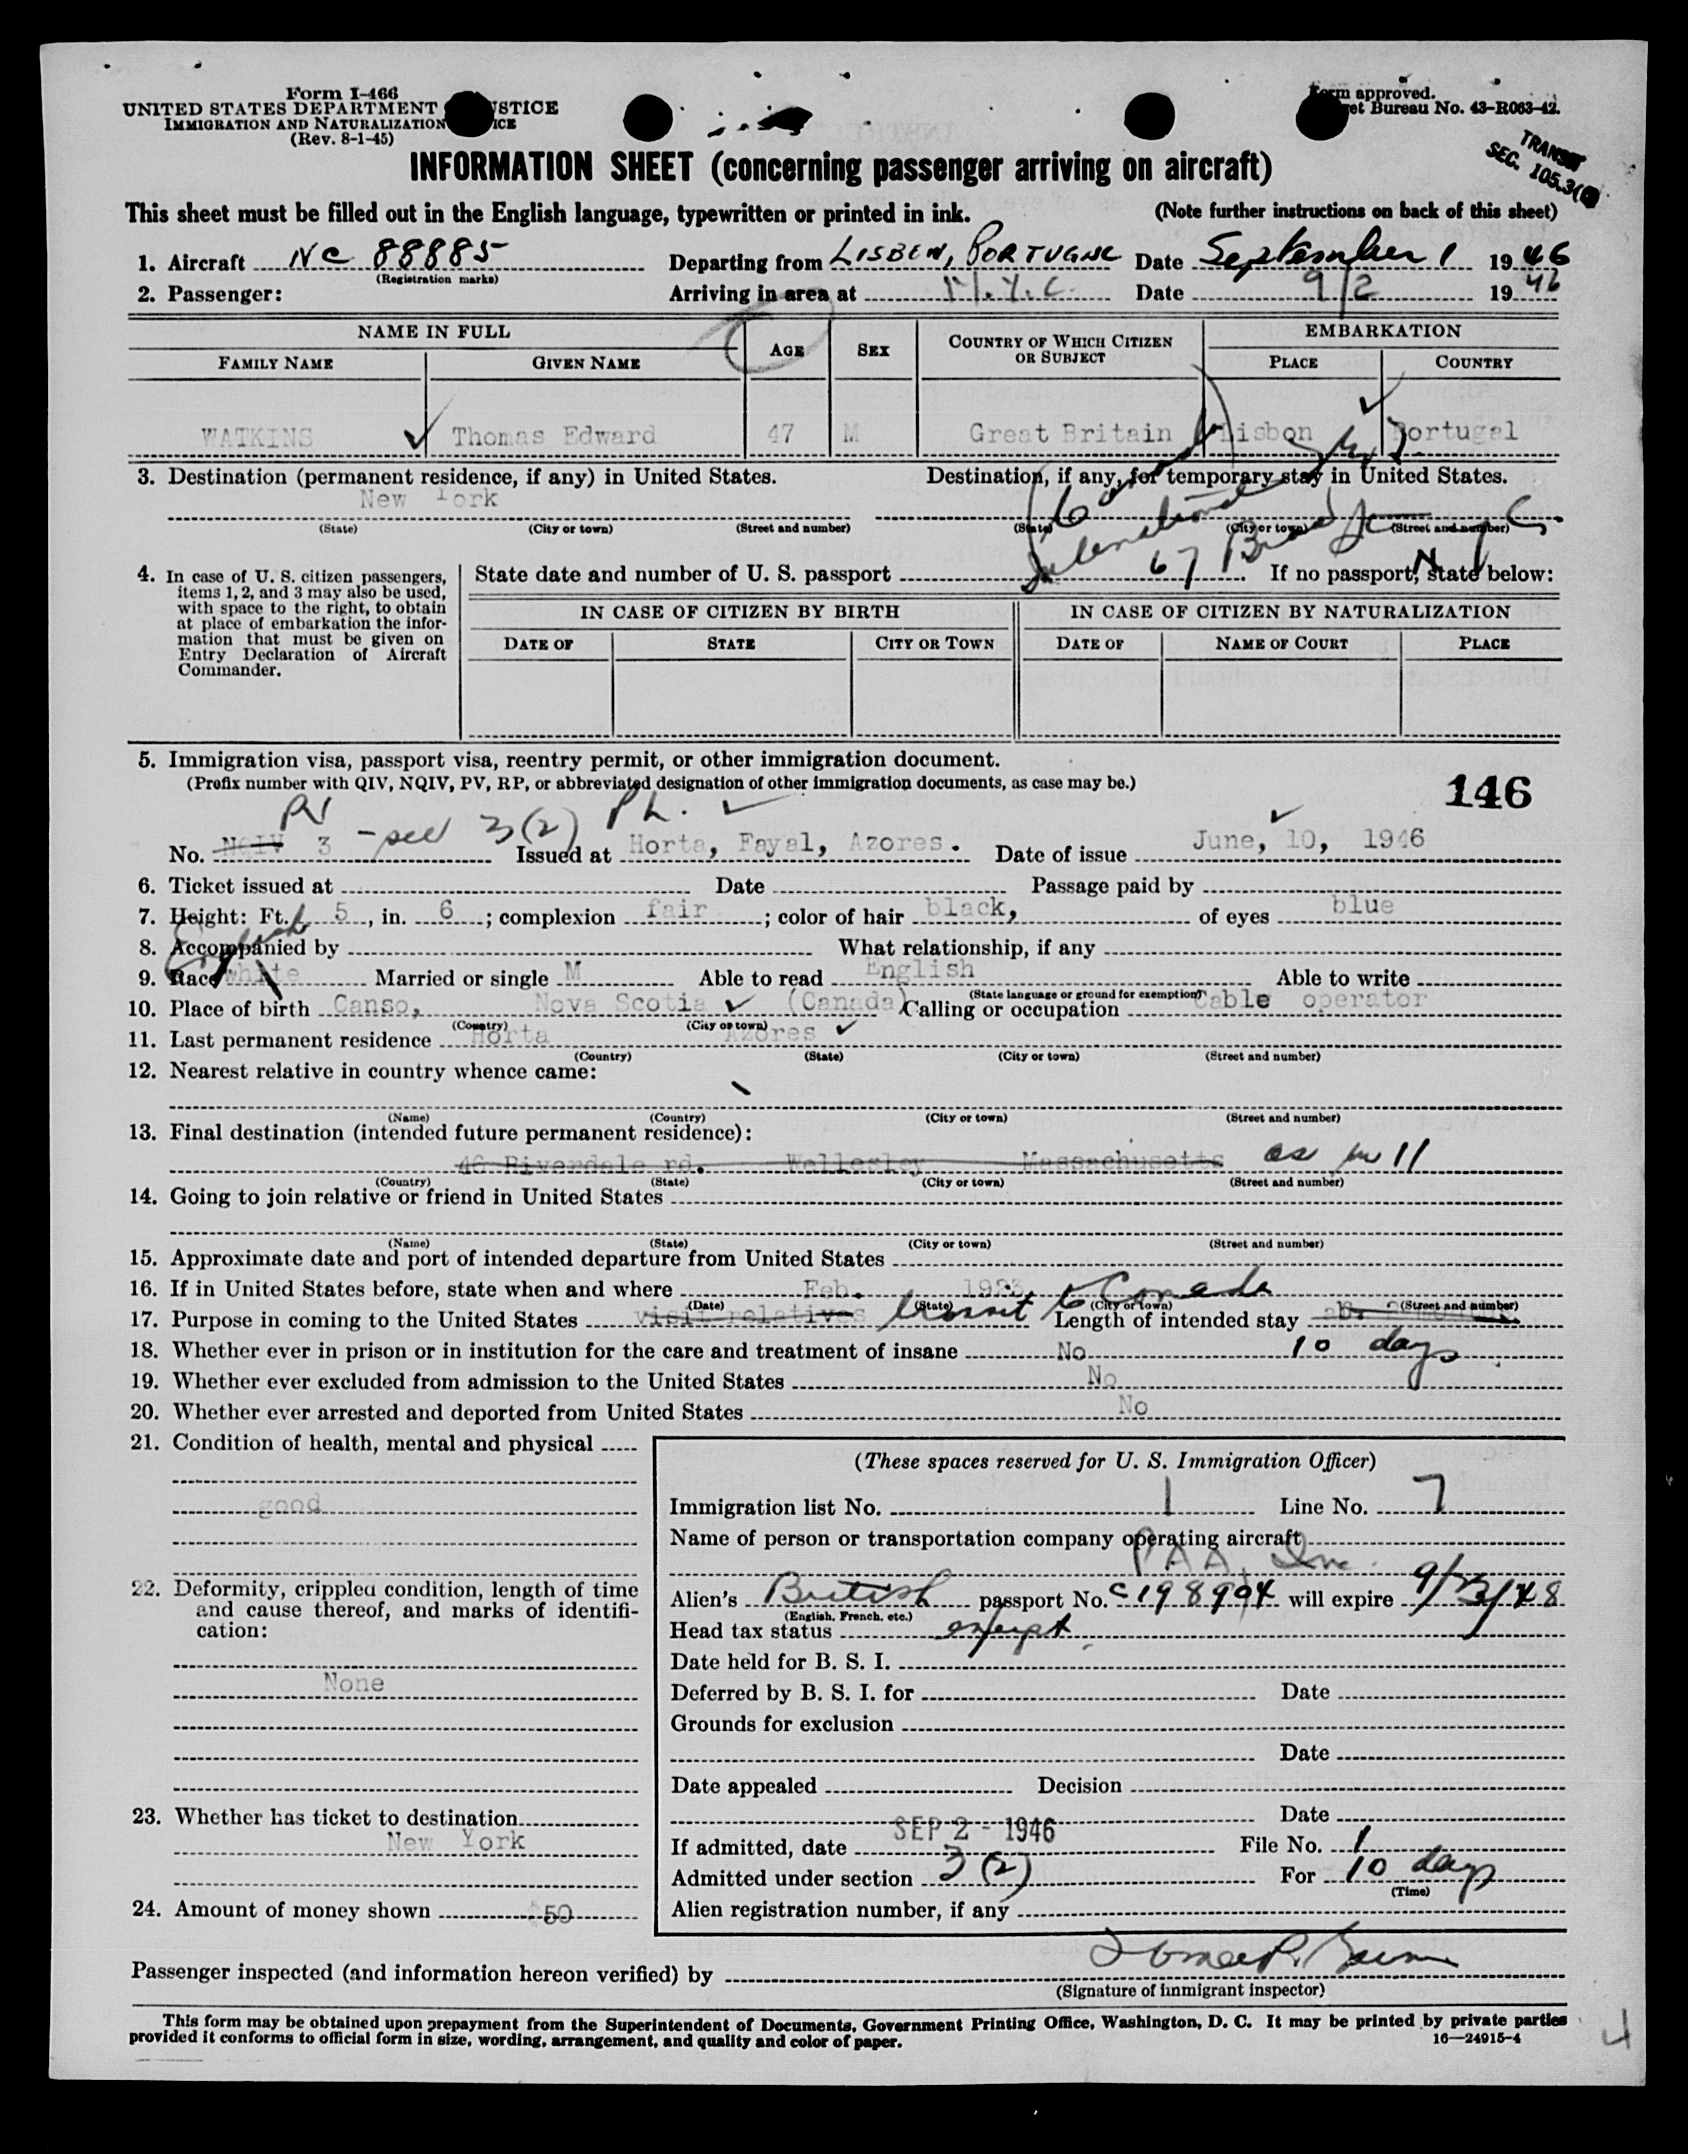 Form I-466
UNITED STATES DEPARTMENT STICE
IMMIGRATION AND NATURALIZATION ICE
(Rev. 8-1-45)
Form approved.
et Bureau No. 43-R063-42.
TRANSIT
SEC. 105.3(
INFORMATION SHEET (concerning passenger arriving on aircraft)
This sheet must be filled out in the English language, typewritten or printed in ink. (Note further instructions on back of this sheet)
1. Aircraft NC 88885 Departing from LISBEN, PORTUGAL Date September 1 1946
(Registration marks)
2. Passenger: Arriving in area at N.Y.C. Date 9/2 1946
NAME IN FULL AGE SEX COUNTRY OF WHICH CITIZEN OR SUBJECT EMBARKATION
FAMILY NAME GIVEN NAME PLACE COUNTRY
WATKINS Thomas Edward 47 M Great Britain Lisbon Portugal
3. Destination (permanent residence, if any) in United States. Destination, if any, for temporary stay in United States.
New York
(State) (City or town) (Street and number) (State) (City or town) (Street and number)
International
67 Broad St NYC
4. In case of U. S. citizen passengers, items 1, 2, and 3 may also be used, with space to the right, to obtain at place of embarkation the information that must be given on Entry Declaration of Aircraft Commander.
State date and number of U. S. passport If no passport, state below:
IN CASE OF CITIZEN BY BIRTH IN CASE OF CITIZEN BY NATURALIZATION
DATE OF STATE CITY OR TOWN DATE OF NAME OF COURT PLACE
5. Immigration visa, passport visa, reentry permit, or other immigration document.
(Prefix number with QIV, NQIV, PV, RP, or abbreviated designation of other immigration documents, as case may be.)
146
PV
No. NQIV 3 - sec 3(2) Ph. Issued at Horta, Fayal, Azores. Date of issue June, 10, 1946
6. Ticket issued at Date Passage paid by
7. Height: Ft. 5, in. 6; complexion fair; color of hair black, of eyes blue
8. Accompanied by What relationship, if any
English
9. Race white Married or single M Able to read English Able to write
(State language or ground for exemption)
10. Place of birth Canso, Nova Scotia (Canada) Calling or occupation Cable operator
(Country) (City or town)
11. Last permanent residence Horta Azores
(Country) (State) (City or town) (Street and number)
12. Nearest relative in country whence came:
(Name) (Country) (City or town) (Street and number)
13. Final destination (intended future permanent residence):
46 Riverdale rd. Wellesley Massachusetts as in 11
(Country) (State) (City or town) (Street and number)
14. Going to join relative or friend in United States
(Name) (State) (City or town) (Street and number)
15. Approximate date and port of intended departure from United States
16. If in United States before, state when and where Feb. 1923
(Date) (State) (City or town) (Street and number)
17. Purpose in coming to the United States visit relatives transit to Canada Length of intended stay ab. 2 months
10 days
18. Whether ever in prison or in institution for the care and treatment of insane No
19. Whether ever excluded from admission to the United States No
20. Whether ever arrested and deported from United States No
21. Condition of health, mental and physical
good
22. Deformity, crippled condition, length of time and cause thereof, and marks of identification:
None
23. Whether has ticket to destination
New York
24. Amount of money shown 50
(These spaces reserved for U. S. Immigration Officer)
Immigration list No. 1 Line No. 7
Name of person or transportation company operating aircraft
PAA, Inc.
Alien's British passport No. C198904 will expire 9/23/48
(English, French, etc.)
Head tax status exempt
Date held for B. S. I.
Deferred by B. S. I. for Date
Grounds for exclusion
Date
Date appealed Decision
Date
If admitted, date SEP 2 - 1946 File No. 1
Admitted under section 3(2) For 10 days
(Time)
Alien registration number, if any
Passenger inspected (and information hereon verified) by
(Signature of immigrant inspector)
This form may be obtained upon prepayment from the Superintendent of Documents, Government Printing Office, Washington, D. C. It may be printed by private parties
provided it conforms to official form in size, wording, arrangement, and quality and color of paper. 16—24915-4
4